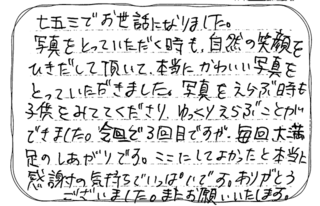 七五三でお世話になりました。
写真をとっていただく時も、自然の笑顔を
ひきだして頂いて、本当にかわいい写真を
とっていただきました。写真をえらぶ時も
子供をみててくださり、ゆっくりえらぶことが
できました。今回で3回目ですが、毎回大満
足のしあがりです。ここにしてよかったと本当に
感謝の気持ちでいっぱいです。ありがとう
ございました。またお願いいたします。